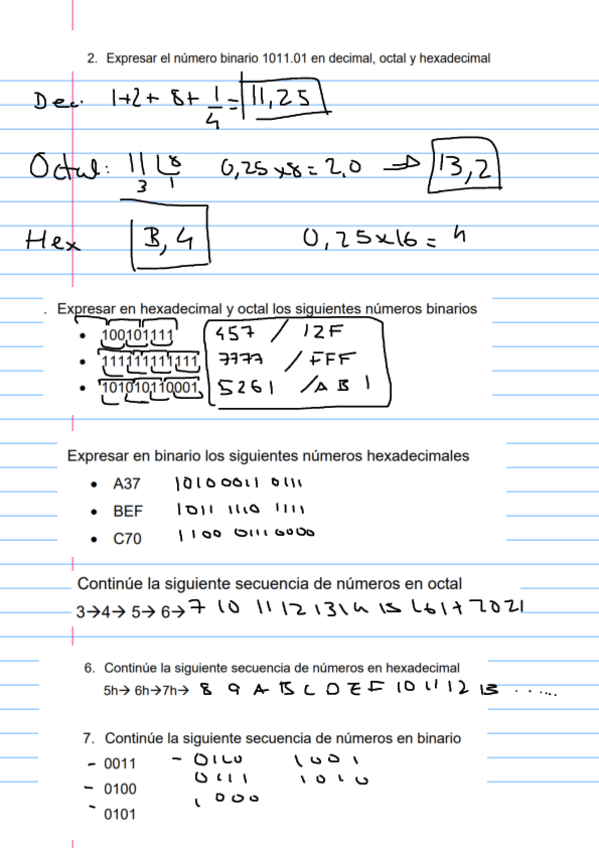 2. Expresar el número binario 1011.01 en decimal, octal y hexadecimal
Dec. 1+2+8+1/4=11,25
Octal: 11 8 0,25x8=2,0 ⇒ 13,2
3 1
Hex B,4 0,25x16=4
. Expresar en hexadecimal y octal los siguientes números binarios
• 100101111 457 / 12F
• 111111111111 7777 / FFF
• 101010110001 5261 / AB1
Expresar en binario los siguientes números hexadecimales
• A37 10100011 0111
• BEF 1011 1110 1111
• C70 1100 0111 0000
Continúe la siguiente secuencia de números en octal
3→4→ 5→ 6→ 7 10 11 12 13 14 15 16 17 20 21
6. Continúe la siguiente secuencia de números en hexadecimal
5h→ 6h→7h→ 8 9 A B C D E F 10 11 12 13 ......
7. Continúe la siguiente secuencia de números en binario
- 0011 - 0110 1001
- 0100 0111 1010
- 0101 1000